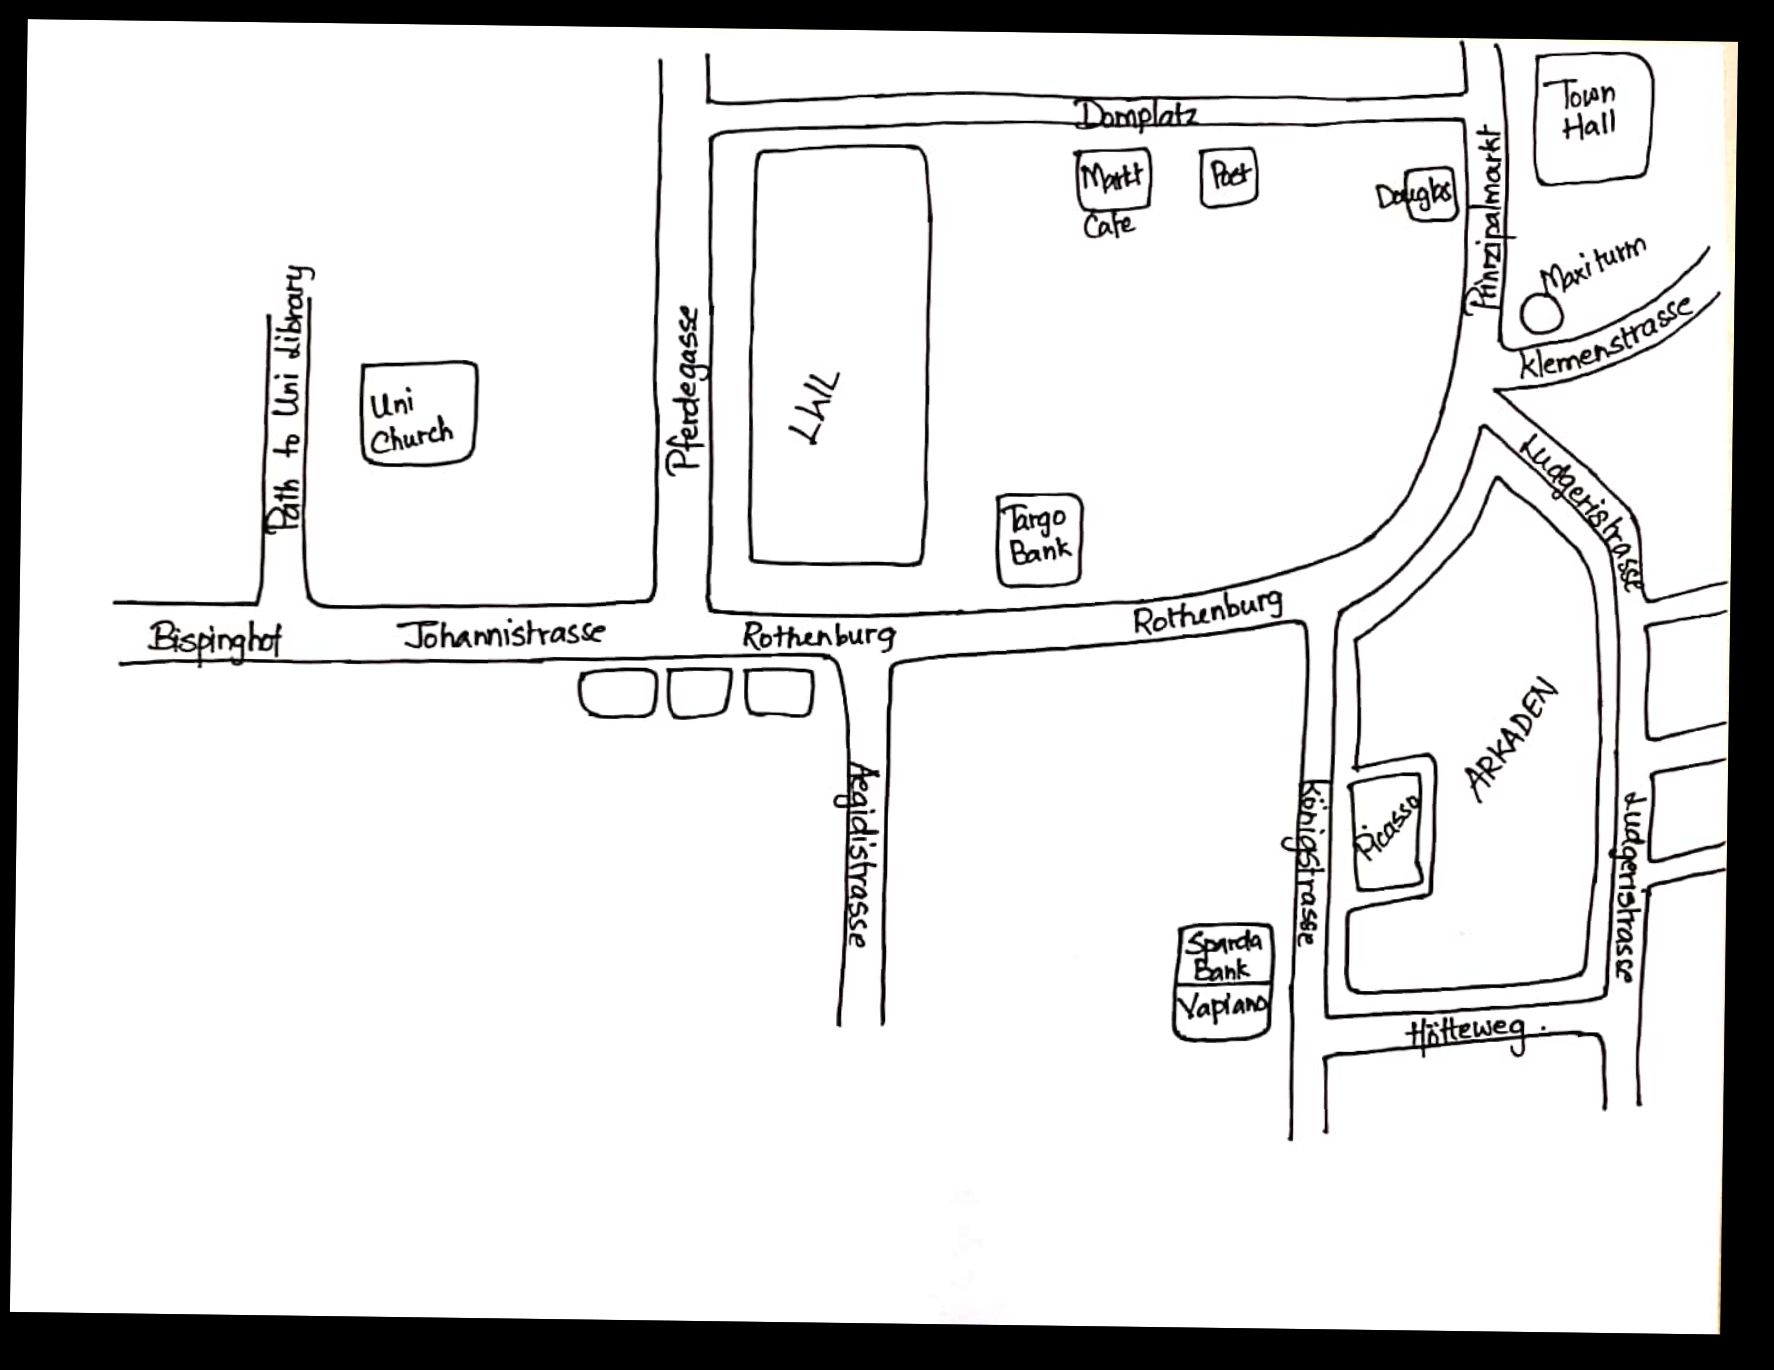 Domplatz
Town
Hall
Markt
Cafe
Post
Douglas
Prinzipalmarkt
Maxiturm
Klemenstrasse
Path to Uni Library
Uni
Church
Pferdegasse
LWL
Targo
Bank
Ludgeristrasse
Bispinghof
Johannistrasse
Rothenburg
Rothenburg
ARKADEN
Picasso
Aegidistrasse
Königstrasse
Ludgeristrasse
Sparda
Bank
Vapiano
Hötteweg.